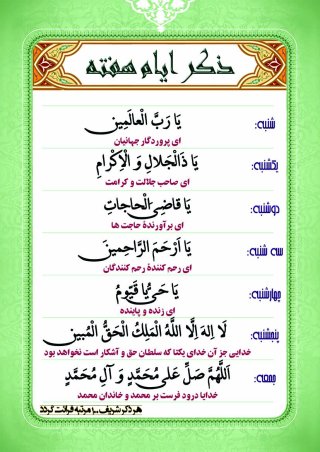 ذکر ایام هفته
شنبه: یَا رَبَّ الْعالَمِین
ای پروردگار جهانیان
یکشنبه: یَا ذَالْجَلالِ وَ الْاِکْرامِ
ای صاحب جلالت و کرامت
دوشنبه: یَا قاضِیَ الْحاجاتِ
ای برآورندهٔ حاجت ها
سه شنبه: یَا اَرْحَمَ الرَّاحِمینَ
ای رحم کنندهٔ رحم کنندگان
چهارشنبه: یَا حَیُّ یا قَیّوُمُ
ای زنده و پاینده
پنجشنبه: لَا اِلهَ اِلَّا اللَّهُ الْمَلِكُ الْحَقُّ الْمُبین
خدایی جز آن خدای یکتا که سلطان حق و آشکار است نخواهد بود
جمعه: اَللَّهُمَّ صَلِّ عَلی مُحَمَّدٍ وَ آلِ مُحَمَّدٍ
خدایا درود فرست بر محمد و خاندان محمد
هر ذکر شریف ۱۰۰ مرتبه قرائت گردد